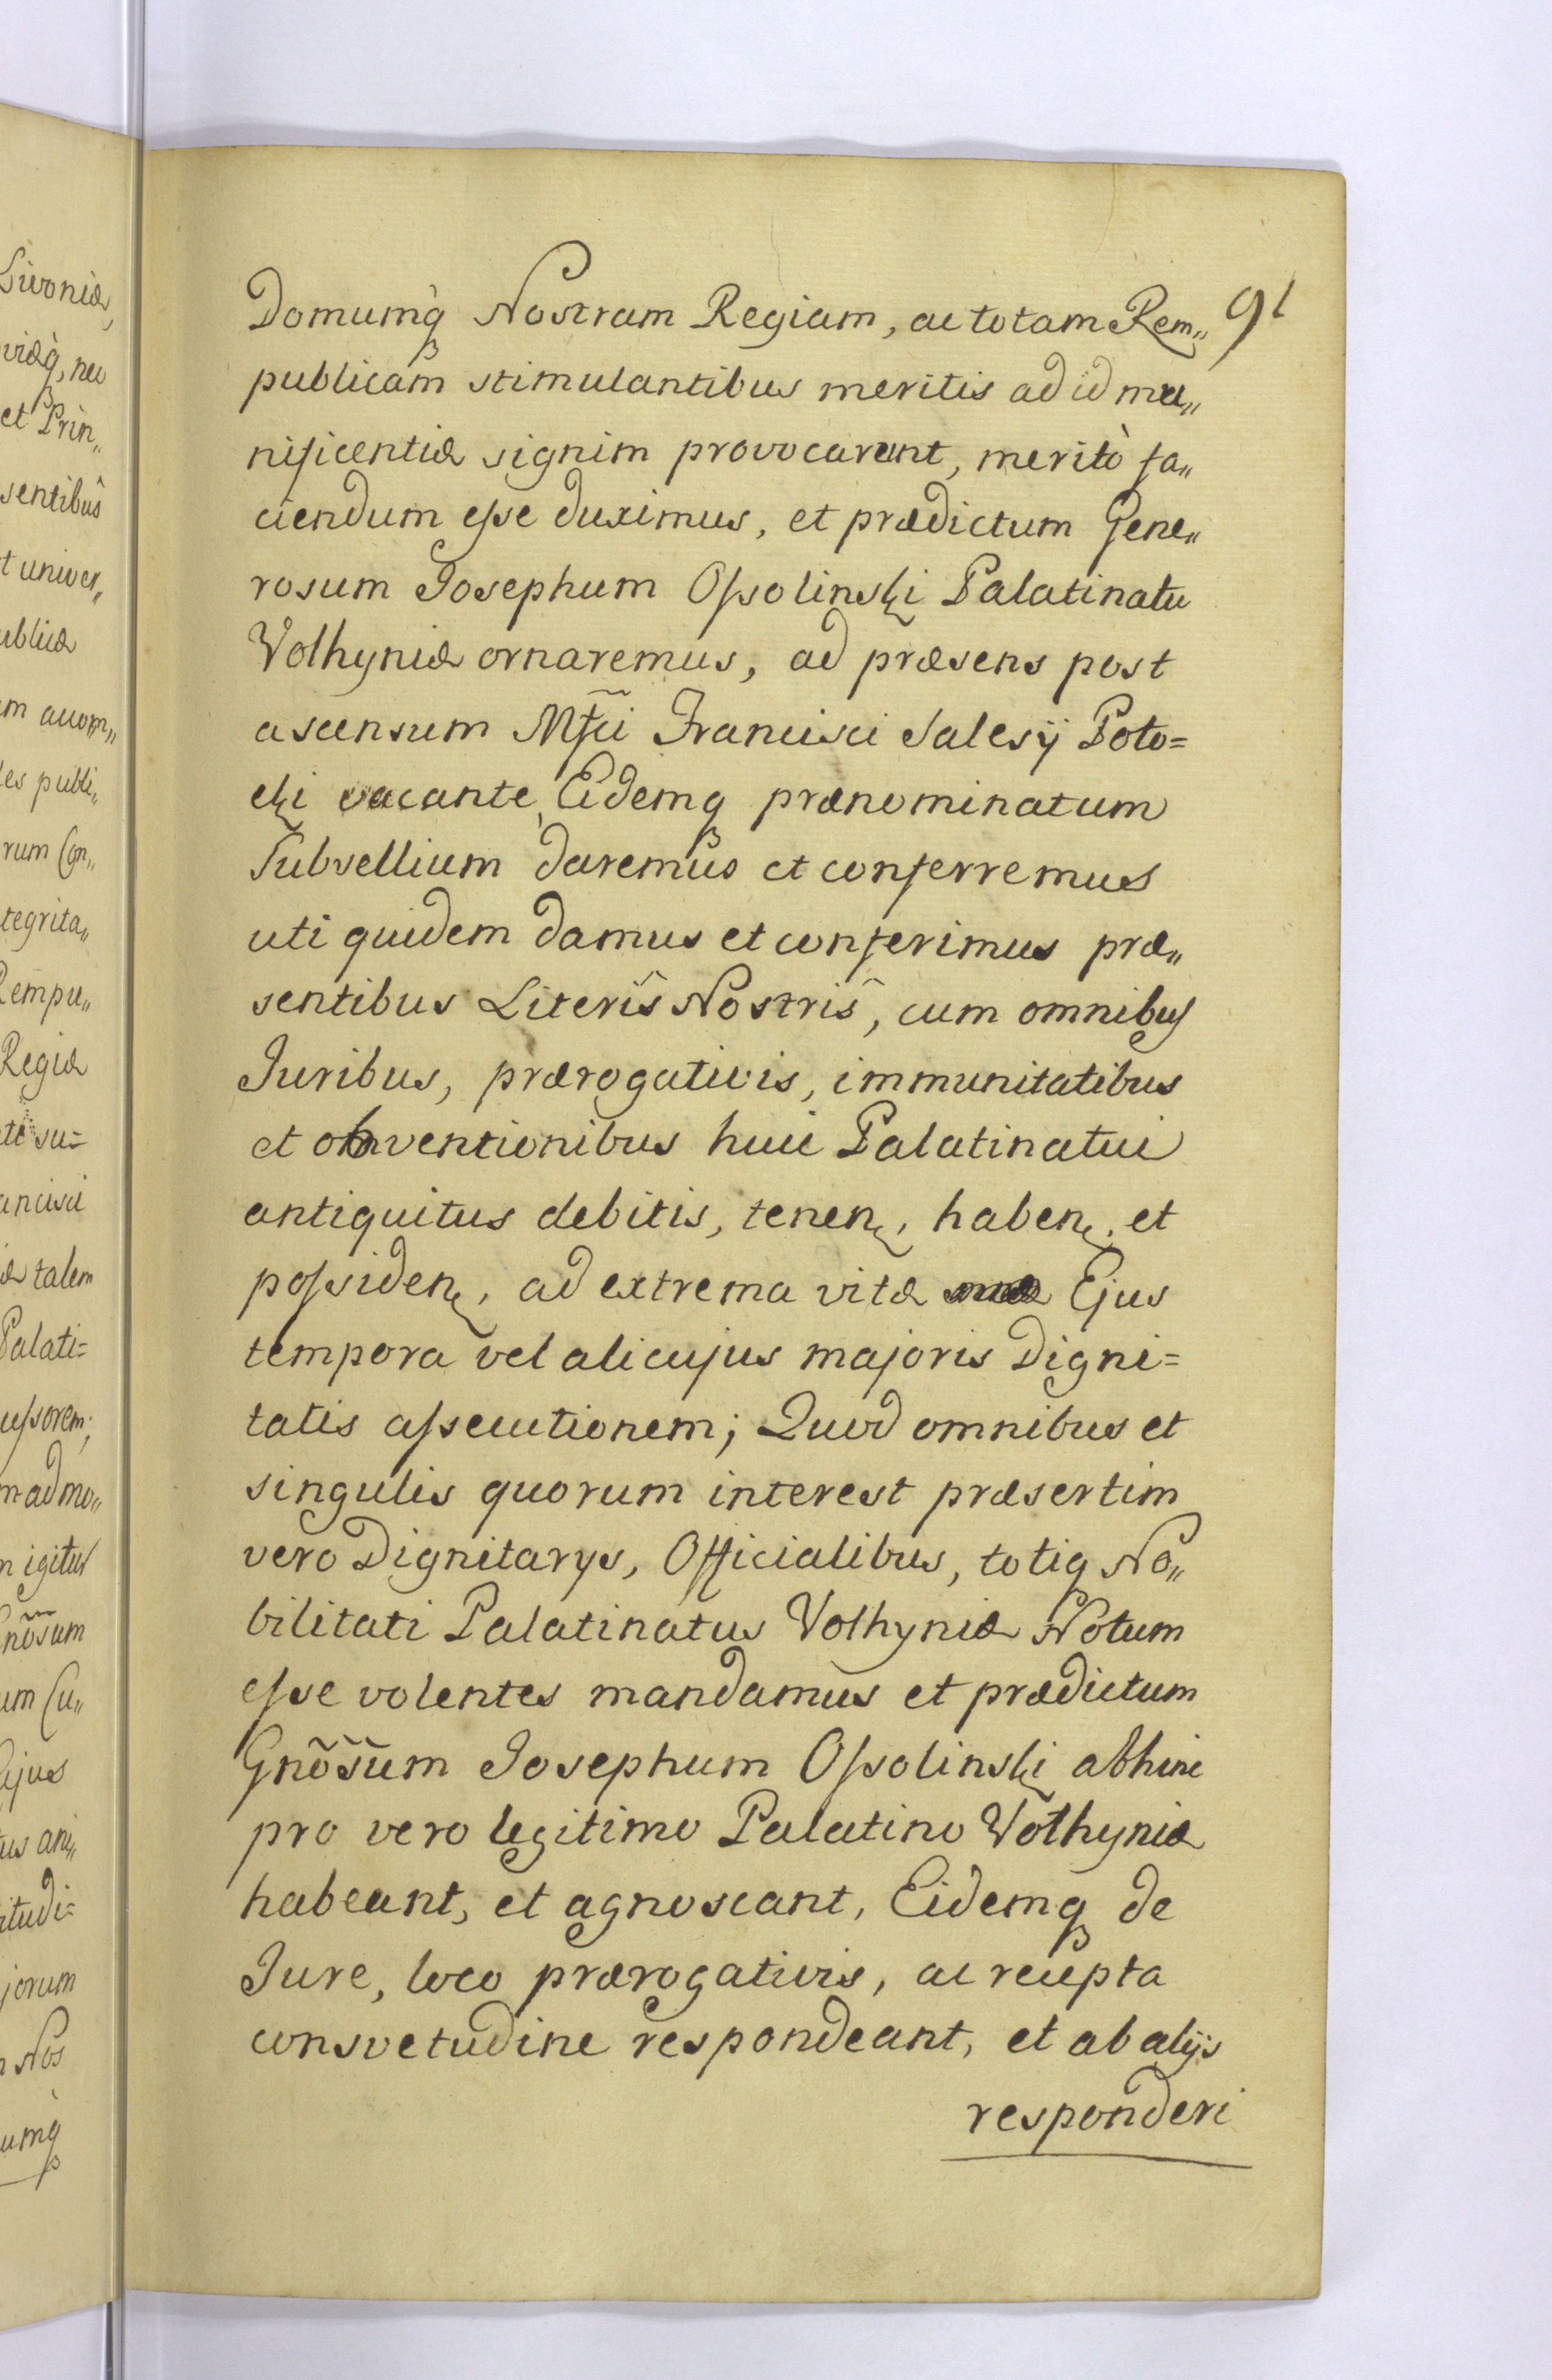 91
Domumq̀ Nostram Regiam, ac totam Rem„
publicam stimulantibus meritis ad id mu„
nificentiæ signim provocarent, meritò fa„
ciendum esse duximus, et prædictum Gene„
rosum Josephum Ossolinski Palatinatu
Volhyniæ ornaremus, ad præsens post
ascensum Mfc̃i Francisci Salesÿ Poto=
cki vacante, Eidemq prænominatum
Subsellium daremus et conferremus
uti quidem damus et conferimus præ„
sentibus Literîs Nostrîs, cum omnibus
Juribus, prærogativis, immunitatibus
et obventionibus huic Palatinatui
antiquitus debitis, tenen, haben, et
possiden, ad extrema vitæ Ejus
tempora vel alicujus majoris Digni=
tatis assecutionem; Quod omnibus et
singulis quorum interest præsertim
vero Dignitarys, Officialibus, totiq No„
bilitati Palatinatus Volhyniæ Notum
esse volentes mandamus et prædictum
Gnõsum Josephum Ossolinski abhinc
pro vero legitimo Palatino Volhyniæ
habeant, et agnoscant, Eidemq de
Jure, loco prærogativis, ac recepta
consvetudine respondeant, et ab alÿs
responderi
Livoniæ,
viæq̀, nec
et Prin„
sentibûs
t univer„
ubliciæ
les publi„
rum Con„
tegrita„
Rempu„
Regiæ
su=
ancisci
talem
Palati=
cessorem;
ad mo„
igitur
nõsum
um Cu„
Cujus
us ani„
itudi=
jorum
Nos
umq